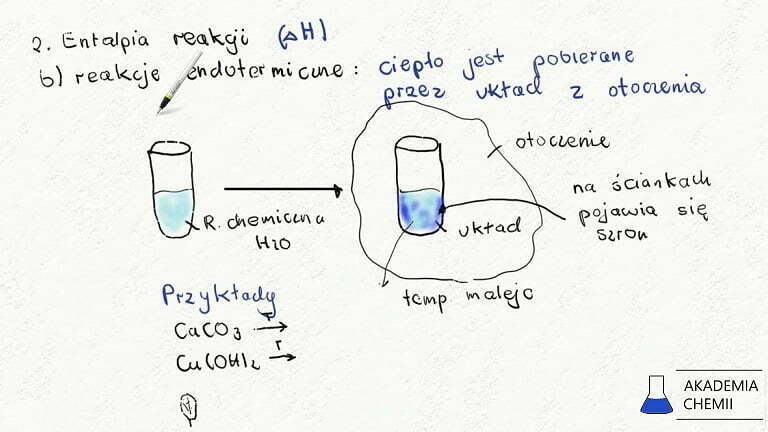 2. Entalpia reakcji (ΔH)
b) reakcje endotermiczne : ciepło jest pobierane
przez układ z otoczenia
otoczenie
na ściankach
pojawia się
szron
R. chemiczna
H2O
układ
temp. maleje
Przykłady
CaCO3 T→
Cu(OH)2 T→
AKADEMIA
CHEMII